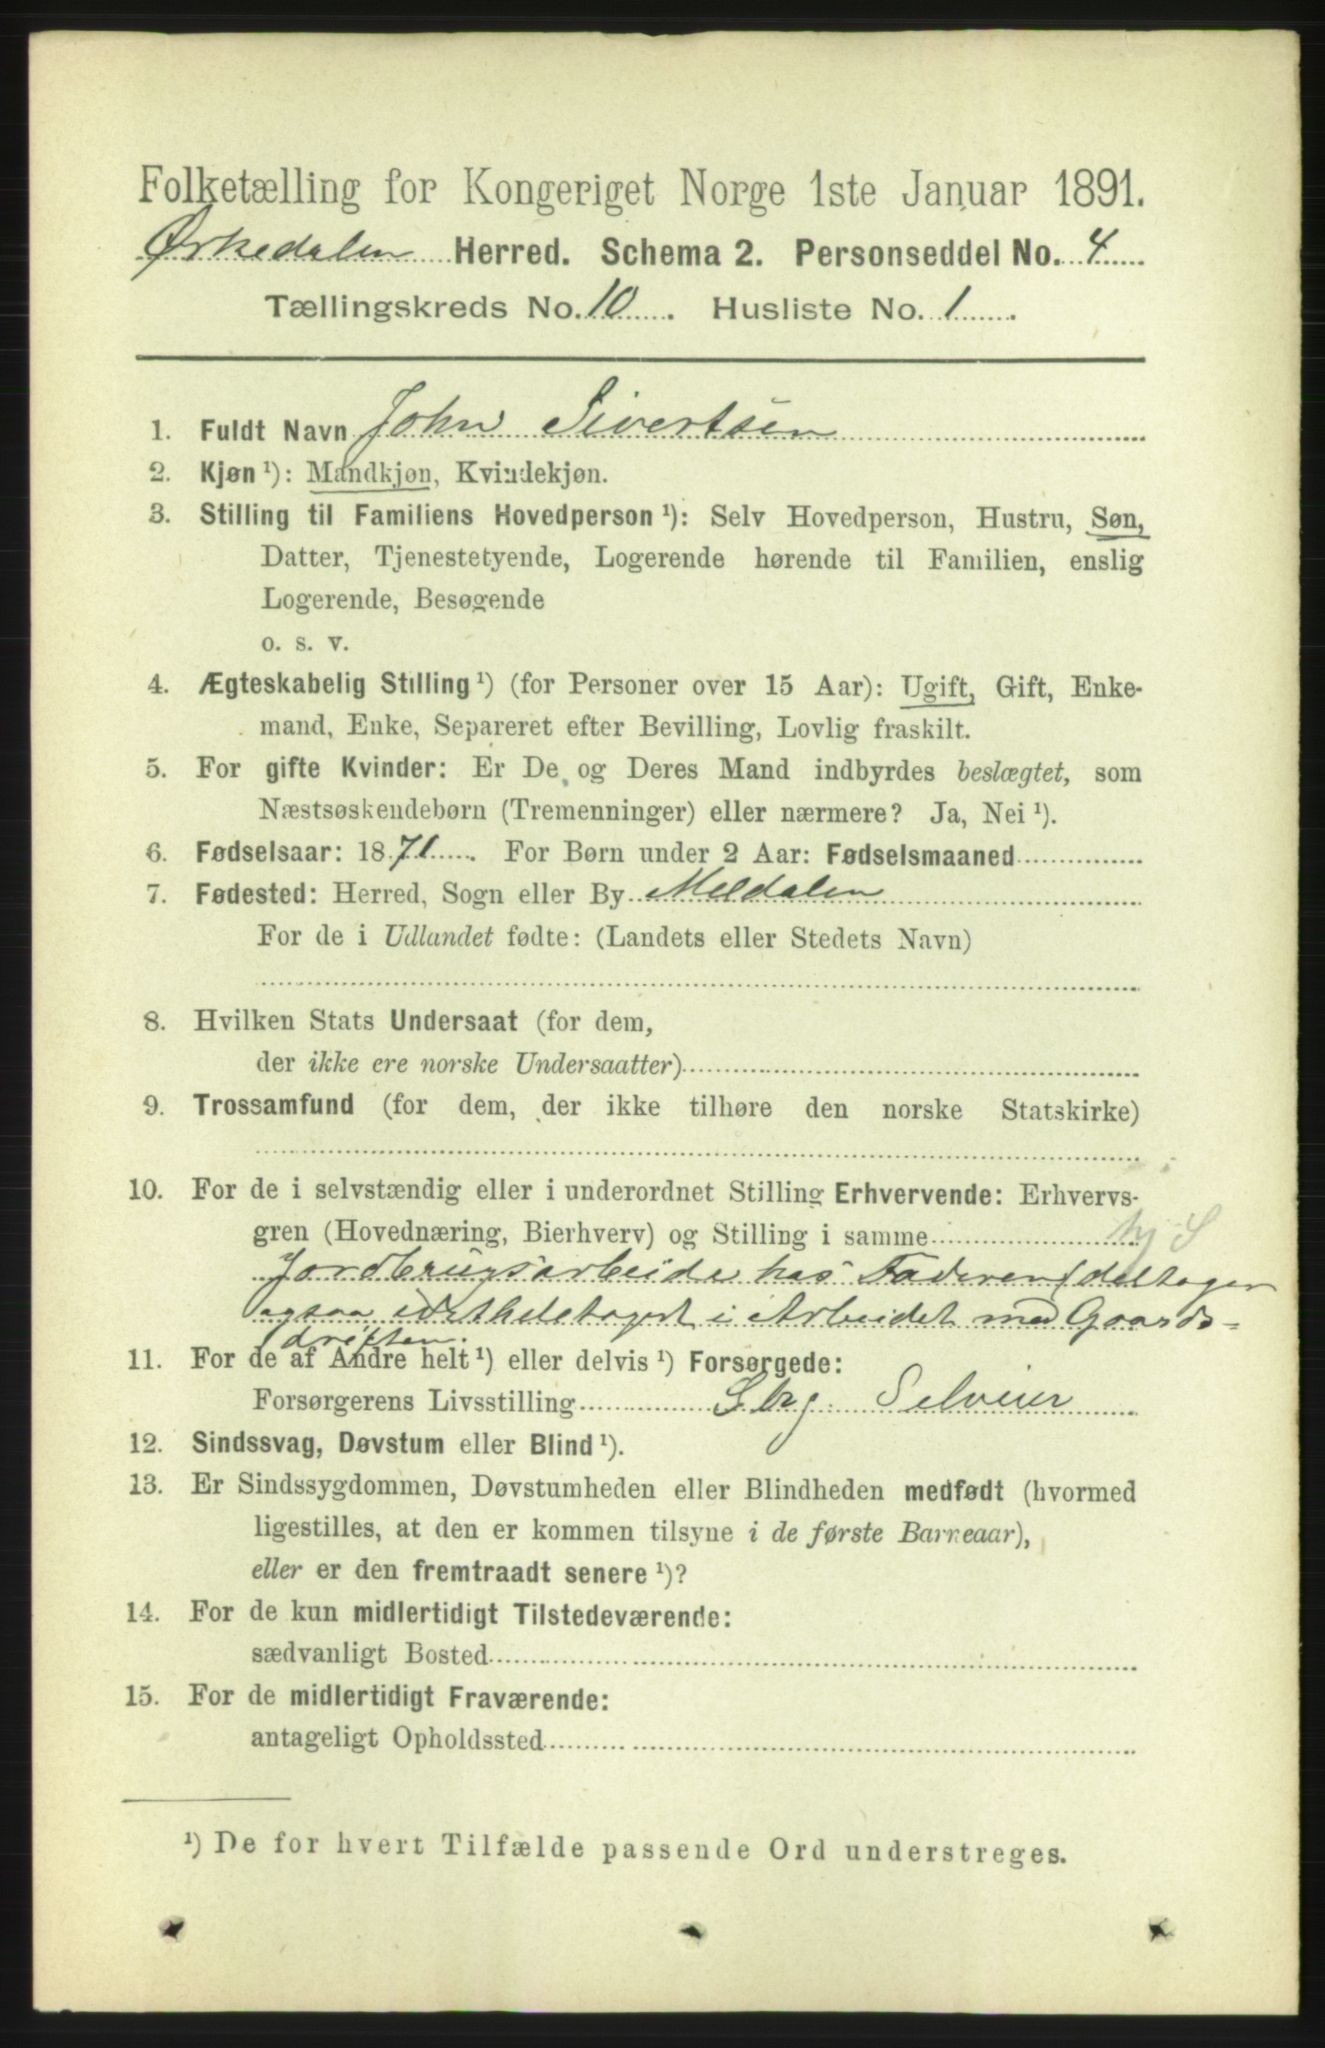 Folketælling for Kongeriget Norge 1ste Januar 1891.
Ørkedalen Herred. Schema 2. Personseddel No. 4
Tællingskreds No. 10. Husliste No. 1.
1. Fuldt Navn John Sivertsen
2. Kjøn ¹): Mandkjøn, Kvindekjøn.
3. Stilling til Familiens Hovedperson ¹): Selv Hovedperson, Hustru, Søn,
Datter, Tjenestetyende, Logerende hørende til Familien, enslig
Logerende, Besøgende
o. s. v.
4. Ægteskabelig Stilling ¹) (for Personer over 15 Aar): Ugift, Gift, Enke-
mand, Enke, Separeret efter Bevilling, Lovlig fraskilt.
5. For gifte Kvinder: Er De og Deres Mand indbyrdes beslægtet, som
Næstsøskendebørn (Tremenninger) eller nærmere? Ja, Nei ¹).
6. Fødselsaar: 1871. For Børn under 2 Aar: Fødselsmaaned
7. Fødested: Herred, Sogn eller By Meldalen
For de i Udlandet fødte: (Landets eller Stedets Navn)
8. Hvilken Stats Undersaat (for dem,
der ikke ere norske Undersaatter)
9. Trossamfund (for dem, der ikke tilhøre den norske Statskirke)
10. For de i selvstændig eller i underordnet Stilling Erhvervende: Erhvervs-
gren (Hovednæring, Bierhverv) og Stilling i samme
Jordbrugsarbeide hos Faderen (deltager
ogsaa i det heletaget i Arbeidet med Gaards-
driften.
11. For de af Andre helt ¹) eller delvis ¹) Forsørgede:
Forsørgerens Livsstilling Gbrg. Selveier
12. Sindssvag, Døvstum eller Blind ¹).
13. Er Sindssygdommen, Døvstumheden eller Blindheden medfødt (hvormed
ligestilles, at den er kommen tilsyne i de første Barneaar),
eller er den fremtraadt senere ¹)?
14. For de kun midlertidigt Tilstedeværende:
sædvanligt Bosted
15. For de midlertidigt Fraværende:
antageligt Opholdssted
¹) De for hvert Tilfælde passende Ord understreges.